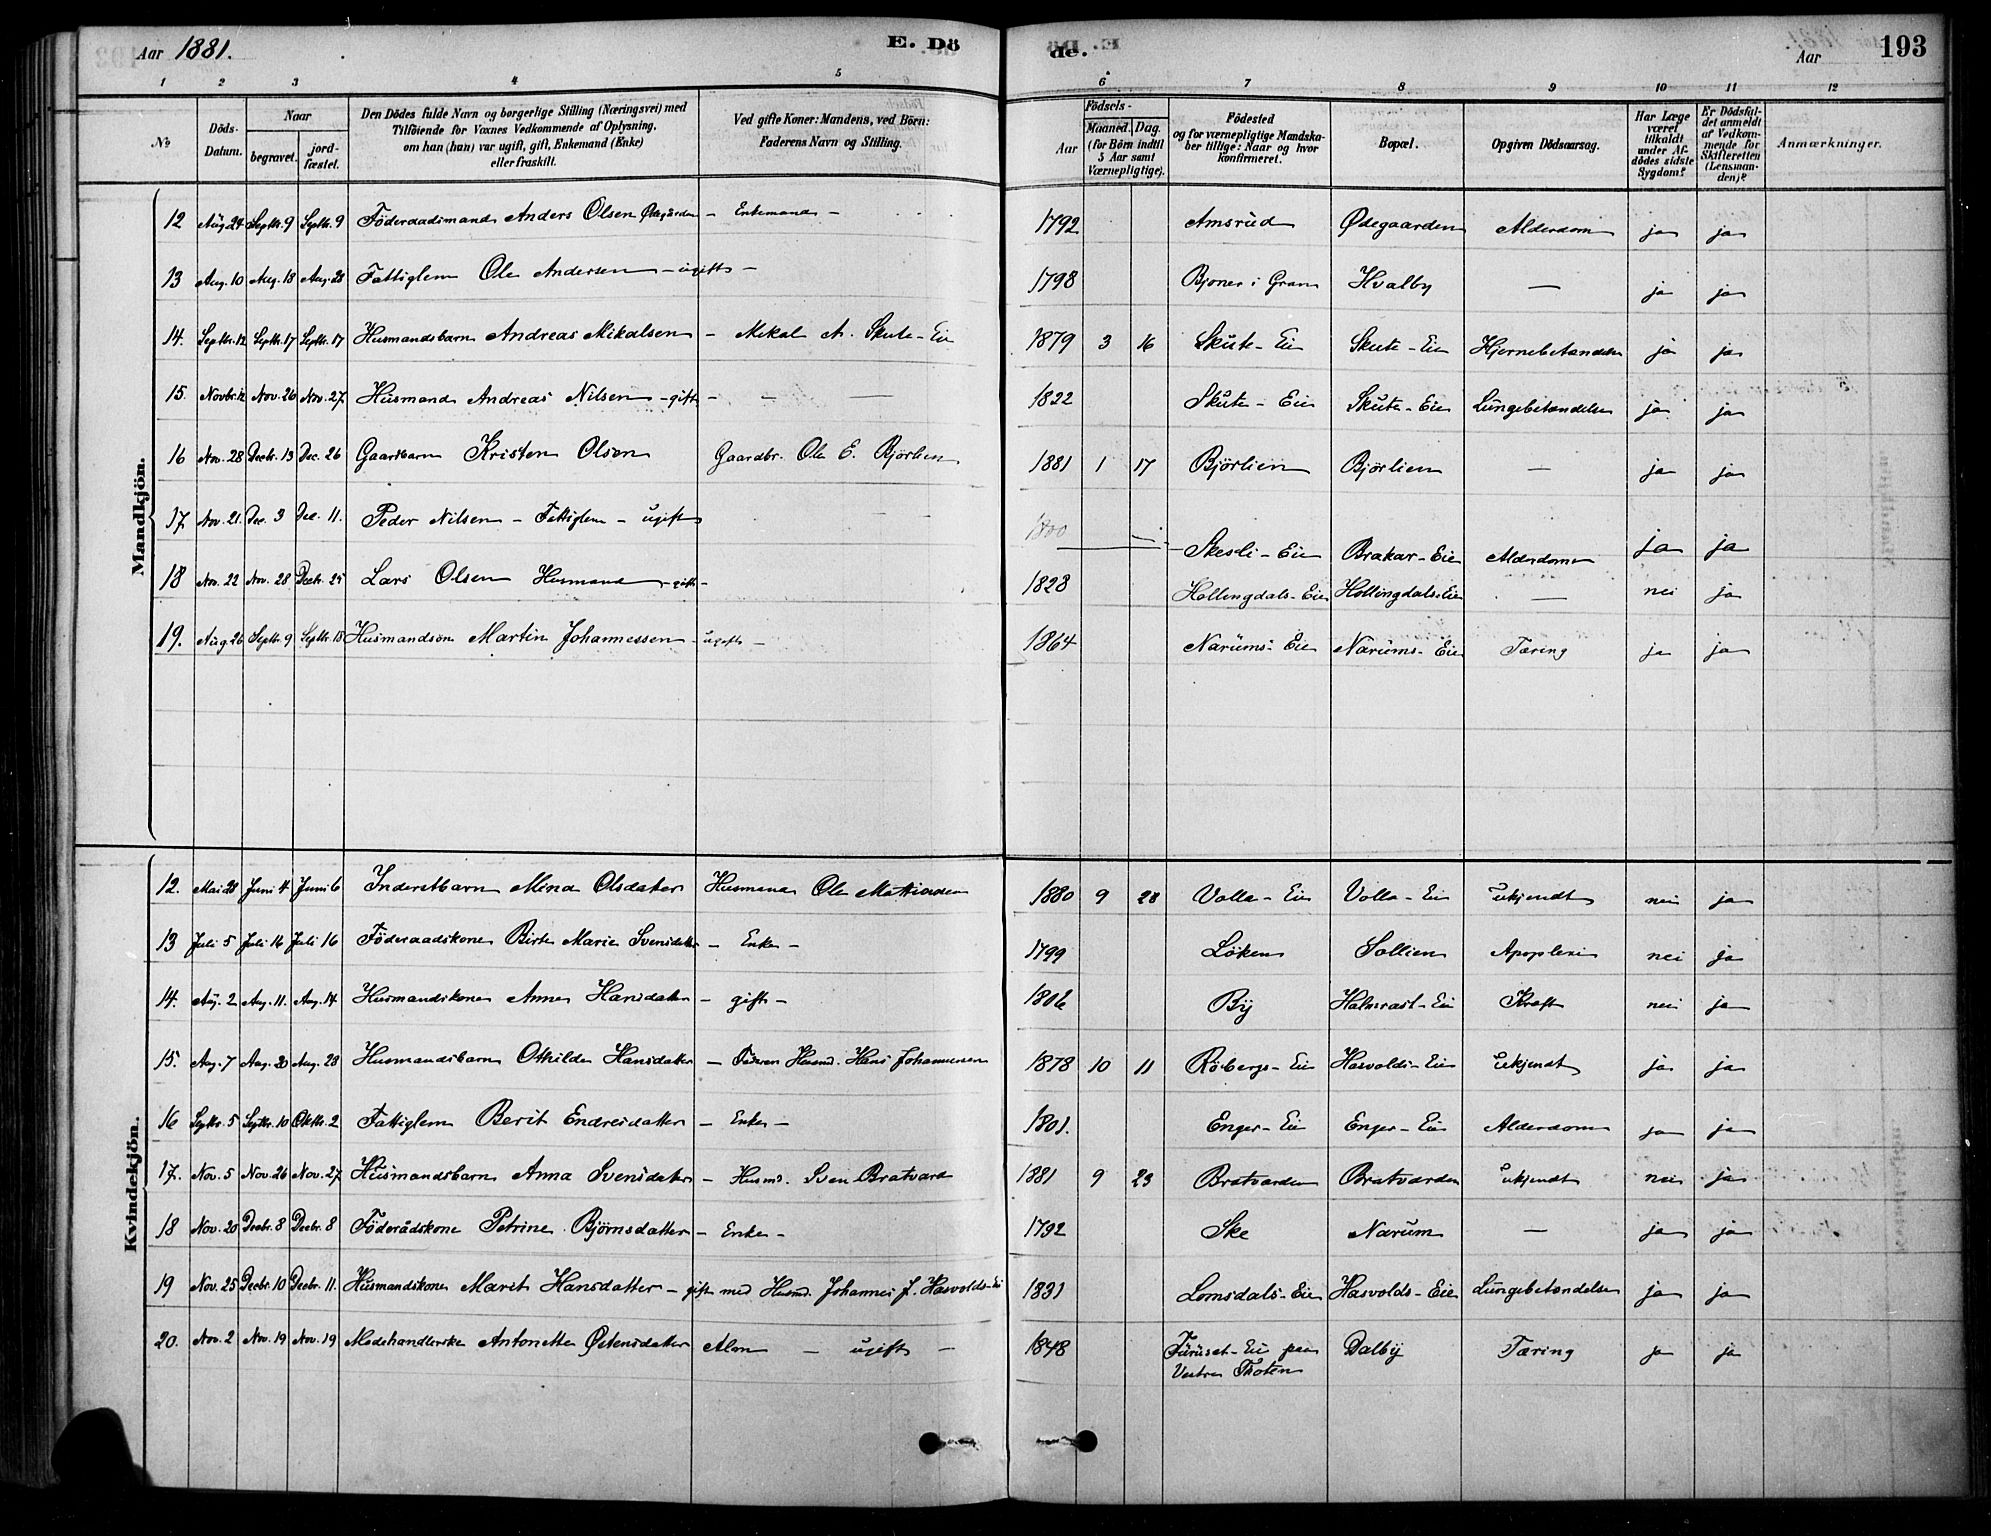 Aar 1881. E. Dö de. Aar 193
1 2 3 4 5 6 7 8 9 10 11 12
No Döds-Datum. Naar begravet. jord-fæstet. Den Dödes fulde Navn og borgerlige Stilling (Næringsvei) med Tilföiende for Voxnes Vedkommende af Oplysning, om han (hun) var ugift, gift, Enkemand (Enke) eller fraskilt. Ved gifte Koner: Mandens, ved Börn: Faderens Navn og Stilling. Födsels- Aar Maaned. Dag. (for Börn indtil 5 Aar samt Værnepligtige). Födested og for værnepligtige Mandskaber tillige: Naar og hvor konfirmeret. Bopæl. Opgiven Dödsaarsag. Har Læge været tilkaldt under Afdödes sidste Sygdom? Er Dödsfaldet anmeldt af Vedkommende for Skifteretten (Lensmanden)? Anmærkninger.
Mandkjön.
12 Aug 24 Septr. 9 Septr. 9 Föderaadsmand Anders Olsen Ødegården – Enkemand – 1792 Amsrud Ødegaarden Alderdom ja ja
13 Aug. 10 Aug. 18 Aug. 28 Fattiglem Ole Andersen – ugift – 1798 Bjoner i Gran Hvalby — ja ja
14. Septr. 12 Septr. 17 Septr. 17 Husmandsbarn Andreas Mikalsen – Mikal A. Skute-Eie 1879 3 16 Skute-Eie Skute-Eie Hjernebetændelse ja ja
15. Novbr. 12 Nov. 26 Nov. 27 Husmand Andreas Nilsen – gift – — — 1822 Skute-Eie Skute-Eie Lungebetændelse ja ja
16 Nov. 28 Decbr. 13 Dec. 26 Gaardbarn Kristen Olsen Gaardbr. Ole E. Björlien 1881 1 17 Björlien Björlien — ja ja
17. Nov. 21. Dec. 3 Dec. 11. Peder Nilsen – Fattiglem – ugift 1800 Skesli-Eie Brakar-Eie Alderdom ja ja
18 Nov. 22 Nov. 28 Decbr. 25 Lars Olsen Husmand – gift – 1828 Hollingdals-Eie Hollingdals-Eie — nei ja
19. Aug. 26 Septr. 9 Septr. 18 Husmandsön Martin Johannessen – ugift – 1864 Narums-Eie Narums-Eie Tæring ja ja
Kvindekjön.
12. Mai 28 Juni 4 Juni 6 Inderstbarn Mina Olsdatter Husmand Ole Mattiasen 1880 9 28 Volla-Eie Volla-Eie Ukjendt nei ja
13 Juli 5 Juli 16 Juli 16 Föderaadskone Birte Marie Svensdatter – Enke – 1799 Löken Sollien Apoplexi nei ja
14. Aug. 2 Aug. 11. Aug. 14 Husmandskone Anne Hansdatter – gift – 1806 By Halmrast-Eie Kræft nei ja
15. Aug. 7 Aug. 20 Aug. 28 Husmandsbarn Othilde Hansdatter – Husmd. Hans Johannesen 1878 10 11 Röbergs-Eie Hasvolds-Eie Ukjendt ja ja
16 Septr. 5 Septr. 10 Oktbr. 2 Fattiglem Berit Endresdatter – Enke – 1801. Enger-Eie Enger-Eie Alderdom ja ja
17. Nov. 5 Nov. 26 Nov. 27 Husmandsbarn Anna Svensdatter – Husmd. Sven Bratvard 1881 9 23 Bratvarden Bratvarden Ukjendt nei ja
18 Nov. 20 Decbr. 8 Decbr. 8 Föderådskone Petrine Björnsdatter – Enke – 1792 Ske Narum — ja ja
19 Nov. 25 Decbr. 10 Decbr. 11. Husmandskone Marit Hansdatter – gift med Husmd. Johannes J. Hasvolds-Ei 1831 Lomsdals-Eie Hasvolds-Eie Lungebetændelse ja ja
20. Nov. 2 Nov. 19 Nov. 19 Modehandlerske Antonette Østensdatter Alm – ugift – 1848 Furuset-Eie paa Dalby Tæring ja ja
Vestre Thoten